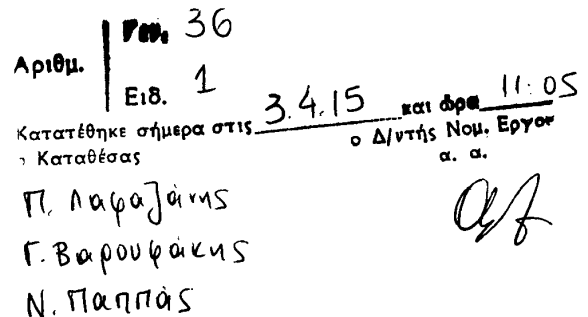 Γεν. 36
Αριθμ.
Ειδ. 1
Κατατέθηκε σήμερα στις 3.4.15 και ώρα 11:05
ο Καταθέσας
ο Δ/ντής Νομ. Εργου
α. α.
Π. Λαφαζάνης
Γ. Βαρουφάκης
Ν. Παππάς